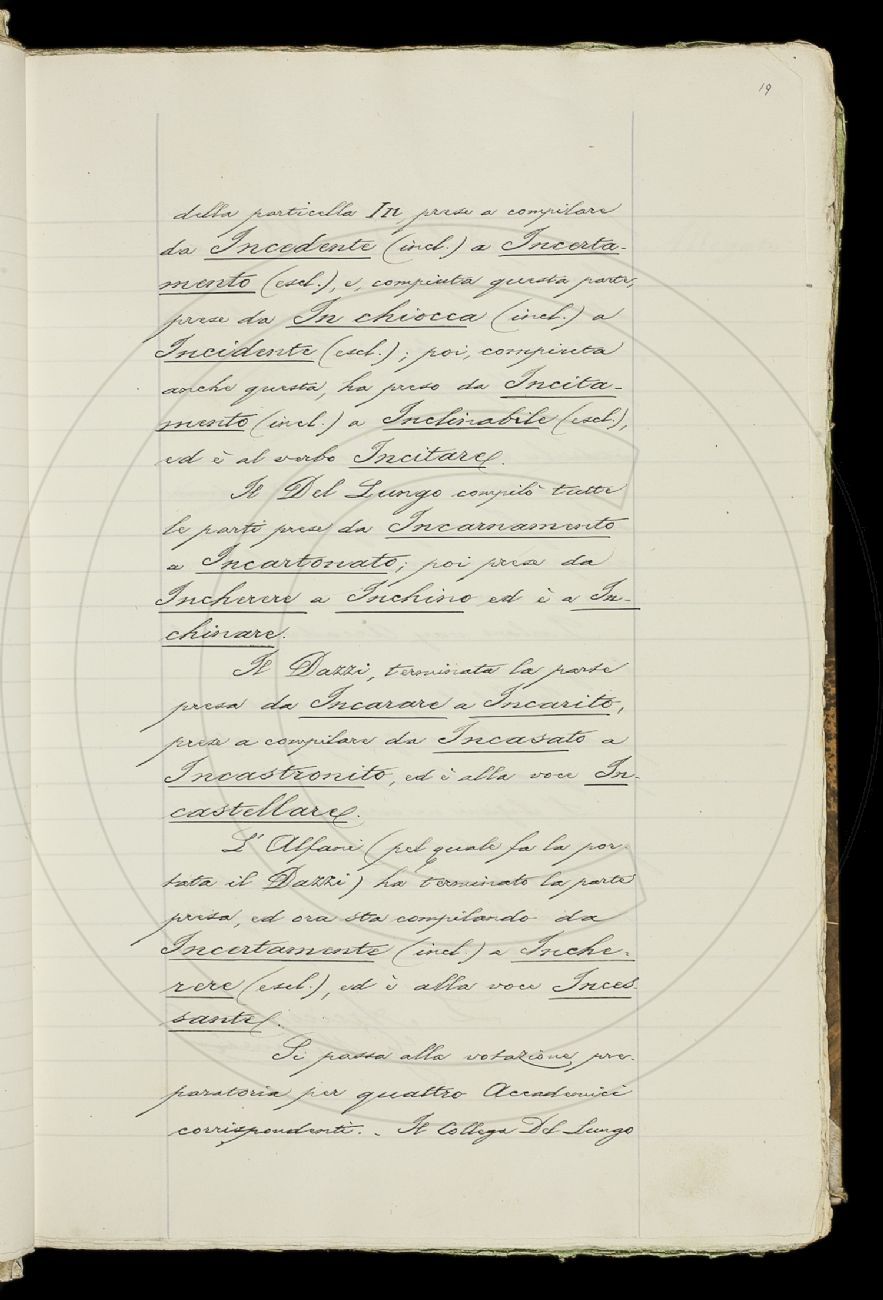 19
della particella In, prese a compilare
da Incedente (incl.) a Incerta-
mento (escl.), e, compiuta questa parte,
prese da In chiocca (incl.) a
Incidente (escl.); poi, compiuta
anche questa, ha preso da Incita-
mento (incl.) a Inclinabile (escl.),
ed è al verbo Incitare.
Il Del Lungo compilò tutte
le parti prese da Incarnamento
a Incartonato; poi prese da
Incherere a Inchino ed è a In-
chinare.
Il Dazzi, terminata la parte
presa da Incarare a Incarito,
prese a compilare da Incasato a
Incastronito, ed è alla voce In-
castellare.
L'Alfani (pel quale fa la por-
tata il Dazzi) ha terminato la parte
presa, ed ora sta compilando da
Incertamente (incl.) a Inche-
rere (escl.), ed è alla voce Inces-
sante.
Si passa alla votazione pre-
paratoria per quattro Accademici
corrispondenti. - Il Collega Del Lungo